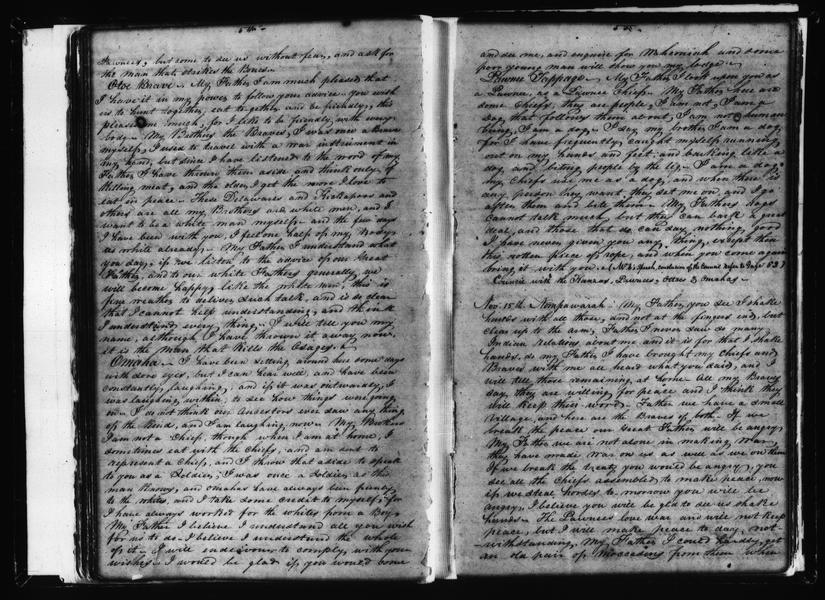 Pawnees, but come to see us without fear, and ask for
the man that strikes the Braves.
Otoe Brave. My Father I am much pleased that
I have it in my power to follow your advice. You wish
us to hunt together, eat together and be friendly, this
pleases me much, for I like to be friendly with every
body. My Brothers the Braves, I was once a Brave
myself, I used to travel with a war instrument in
my hand, but since I have listened to the word of my
Father, I have thrown them aside and think only of
killing meat, and the older I get the more I love to
eat in peace. These Delawares and Kickapoos and
others are all my Brothers and white men, and I
want to be a white man myself, and the few days
I have been with you, I feel one half of my body
is white already. My Father I understand what
you say, if we listen to the advice of our Great
Father, and to our white Fathers generally, we
will become happy like the white men, this is
fine weather to deliver such talk, and is so clear
that I cannot help understanding, and think
I understand every thing. I will tell you my
name, although I have thrown it away now,
it is the man that kills the Osages.
Omaha. I have been sitting around here some days
with sore eyes, but I can hear well, and have been
constantly laughing, and if it was outwardly, I
was laughing within, to see how things were going
on. I do not think our Ancestors ever saw any thing
of the kind, and I am laughing now. My Brothers
I am not a Chief, though when I am at home, I
sometimes eat with the Chiefs, and am sent to
represent a Chief, and I throw that aside to speak
to you as a Soldier, I was once a Soldier, as the
man knows, and omahas have always been friendly
to the whites, and I take some credit to myself, for
I have always worked for the whites from a Boy.
My Father I believe I understand all you wish
for us to do. I believe I understand the whole
of it. I will endeavour to comply, with your
wishes. I would be glad if you would come
and see me, and enquire for Wahconiah and some
poor young man will show you my lodge.
Pawnee Tappage. My Father I look upon you as
a Pawnee, as a Pawnee Chief. My Father here are
some Chiefs, they are people, I am not, I am a
dog, that follows them about, I am not a human
being, I am a dog. I say my brother I am a dog,
for I have frequently caught myself running
out on my hands and feet and barking like a
dog, and biting people by the leg. I am a dog,
my Chiefs use me as a dog, and when there is
any person they want, they set me on, and I go
after them and bite them. My Fathers dogs
cannot talk much, but they can bark a great
deal, and those that do, can say nothing good
I have never given you any thing, except then
this rotten piece of rope, and when you come again
bring it with you. (Mr. E's Speech, conclusion of the Council refer to Page 83)
Council with the Kanzas, Pawnees, Ottoes & Omahas
Nov. 15th. Nompawarah. My Father, you see I shake
hands with all these, and not at the fingers end, but
clear up to the arm, Father I never saw so many
Indian relations about me and it is for that I shake
hands, so my Father I have brought my Chiefs and
Braves with me all heard what you said, and I
will tell those remaining at home. All my Braves
say, they are willing for peace and I think they
will keep their word. Father we have a small
village, and here are the Braves of both. If we
break the peace our Great Father will be angry,
My Father we are not alone in making war,
they have made war on us as well as we on them
If we break the treaty you would be angry, you
see all the Chiefs assembled to make peace, now
if we steal horses to morrow you will be
angry, I believe you will be glad to see us shake
hands. The Pawnees love war and will not keep
peace, but I will make peace to day, not-
withstanding, My Father I could hardly get
an old pair of Moccasins from them when